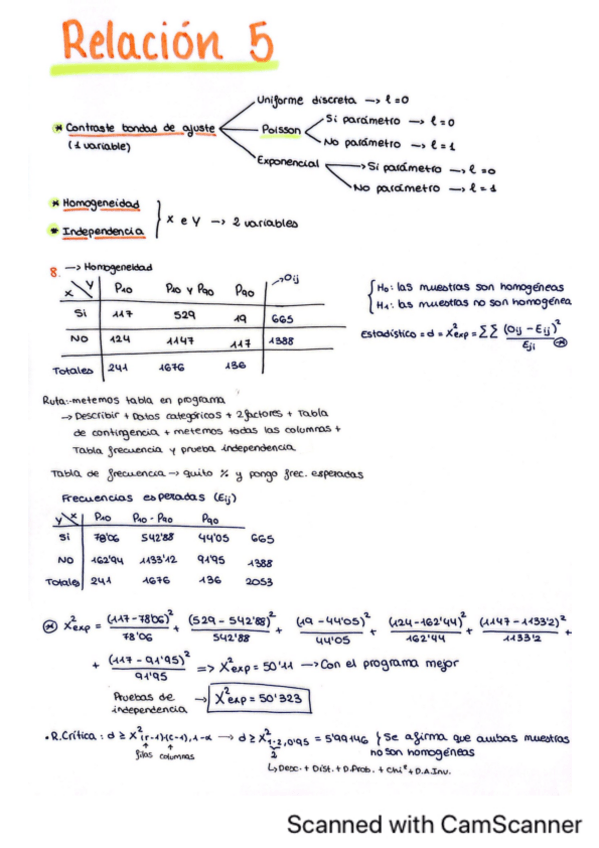 Relación 5
* Contraste bondad de ajuste
(1 variable)
Uniforme discreta → l=0
Poisson
Si parámetro → l=0
No parámetro → l=1
Exponencial
Si parámetro → l=0
No parámetro → l=1
* Homogeneidad
* Independencia
x e y → 2 variables
8. → Homogeneidad
x \ y P10 P10 y P90 P90 → Oij
Si 117 529 19 665
NO 124 1147 117 1388
Totales 241 1676 136
H0: las muestras son homogéneas
H1: las muestras no son homogénea
Estadístico = d = X²exp = ΣΣ (Oij - Eij)² / Eji *
Ruta:-metemos tabla en programa
→ Describir + Datos categóricos + 2 factores + Tabla
de contingencia + metemos todas las columnas +
Tabla frecuencia y prueba independencia
Tabla de frecuencia → quito % y pongo frec. esperadas
Frecuencias esperadas (Eij)
y \ x P10 P10 - P90 P90
Si 78'06 542'88 44'05 665
NO 162'94 1133'12 91'95 1388
Totales 241 1676 136 2053
* X²exp = (117-78'06)² / 78'06 + (529-542'88)² / 542'88 + (19-44'05)² / 44'05 + (124-162'44)² / 162'44 + (1147-1133'2)² / 1133'2 +
+ (117-91'95)² / 91'95 => X²exp = 50'11 → Con el programa mejor
Pruebas de
independencia → X²exp = 50'323
• R.Crítica: d ≥ X²(r-1)(c-1),1-α → d ≥ X²1·2,0'95 = 5'99146 } Se afirma que ambas muestras
no son homogéneas
filas columnas
2
↳ Desc. + Dist. + D.Prob. + Chi² + D.A.Inv.
Scanned with CamScanner